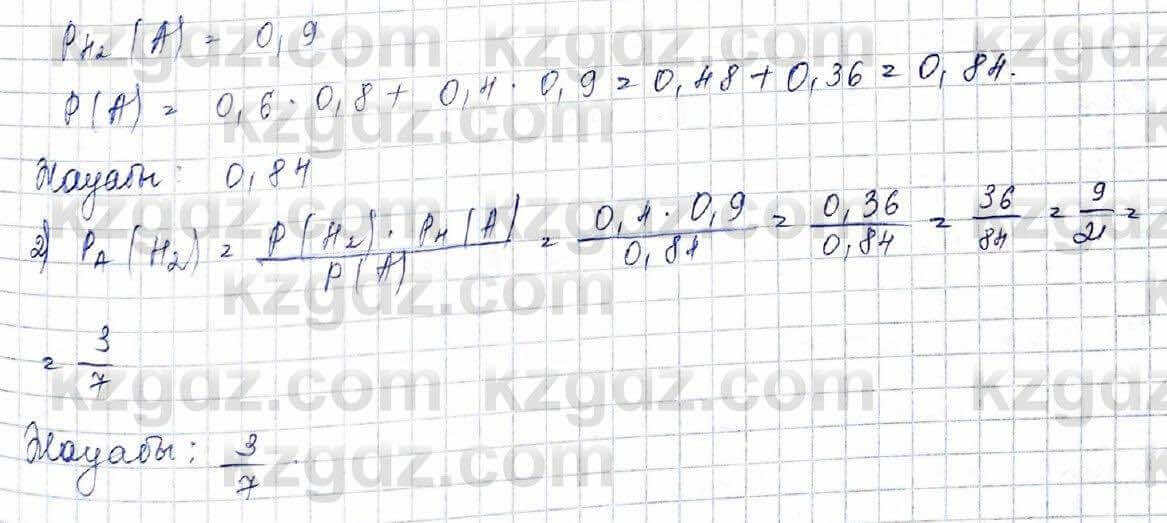 P_{H₂}(A) = 0,9
P(A) = 0,6 · 0,8 + 0,4 · 0,9 = 0,48 + 0,36 = 0,84.
Жауабы: 0,84
2) P_A(H₂) = \frac{P(H₂) · P_H(A)}{P(A)} = \frac{0,4 · 0,9}{0,84} = \frac{0,36}{0,84} = \frac{36}{84} = \frac{9}{21} =
= \frac{3}{7}
Жауабы: \frac{3}{7}.
kzgdz.com kzgdz.com kzgdz.com
kzgdz.com kzgdz.com
kzgdz.com kzgdz.com kzgdz.com
kzgdz.com kzgdz.com
kzgdz.com kzgdz.com kzgdz.com
kzgdz.com kzgdz.com